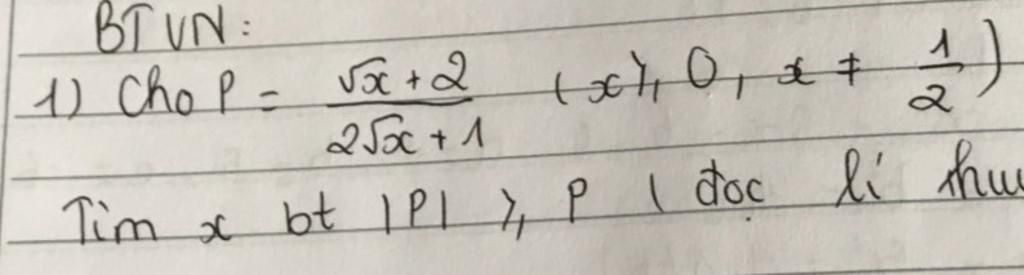 BTVN:
1) Cho P = (√x + 2)/(2√x + 1) (x ≥ 0, x ≠ 1/2)
Tìm x bt |P| ≥ P ( đọc lí